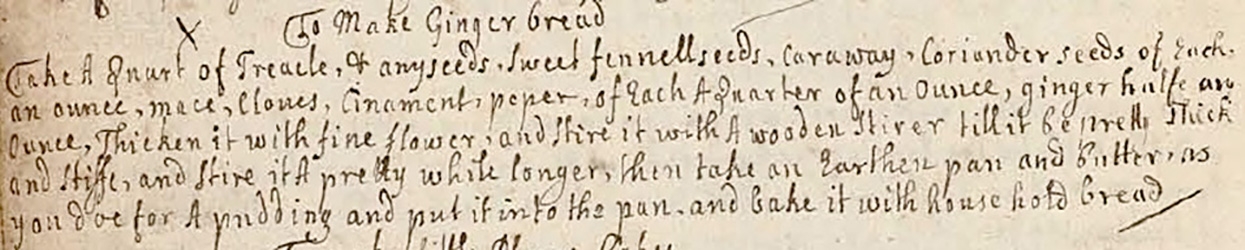 To Make Ginger bread
Take A Quart of Treacle, & anyseeds, sweet fennellseeds, Caraway, Coriander seeds of Each
an ounce, mace, Cloves, Cinament, peper, of Each A Quarter of an Ounce, ginger halfe an
Ounce, Thicken it with fine flower, and Stire it with A wooden Stirer till it be pretty Thick
and Stiffe, and Stire it A pretty while longer, then take an Earthen pan and butter, as
you doe for A pudding and put it into the pan, and bake it with household bread